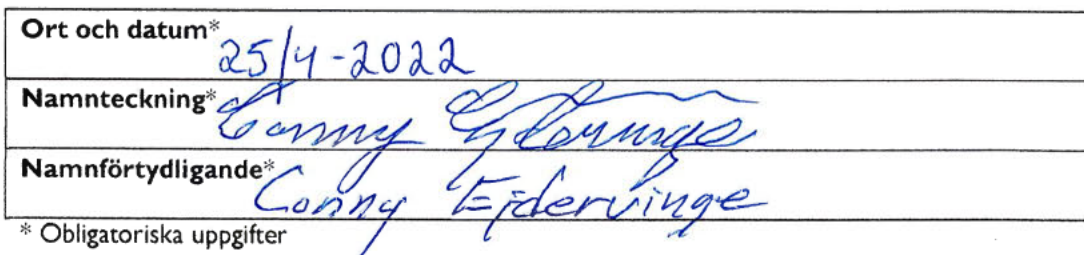 Ort och datum*
25/4-2022
Namnteckning*
Conny Ejdervinge
Namnförtydligande*
Conny Ejdervinge
* Obligatoriska uppgifter